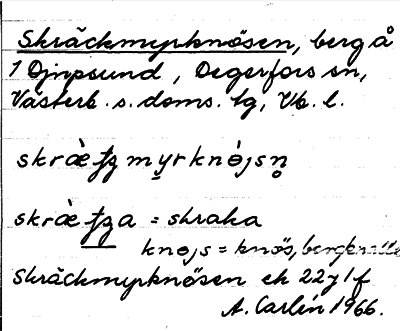 Skräckmyrknösen, berg å
1 Djupsund, Degerfors sn,
Västerb. s. doms. tg, Vb. l.
skræ̀ʈʂʐmyrknǿjsn̥
skræ̀ʈʂʐa = skraka
knejs = knös, bergknalle
Skräckmyrknösen ek 22 y 1 f
A. Carlén 1966.